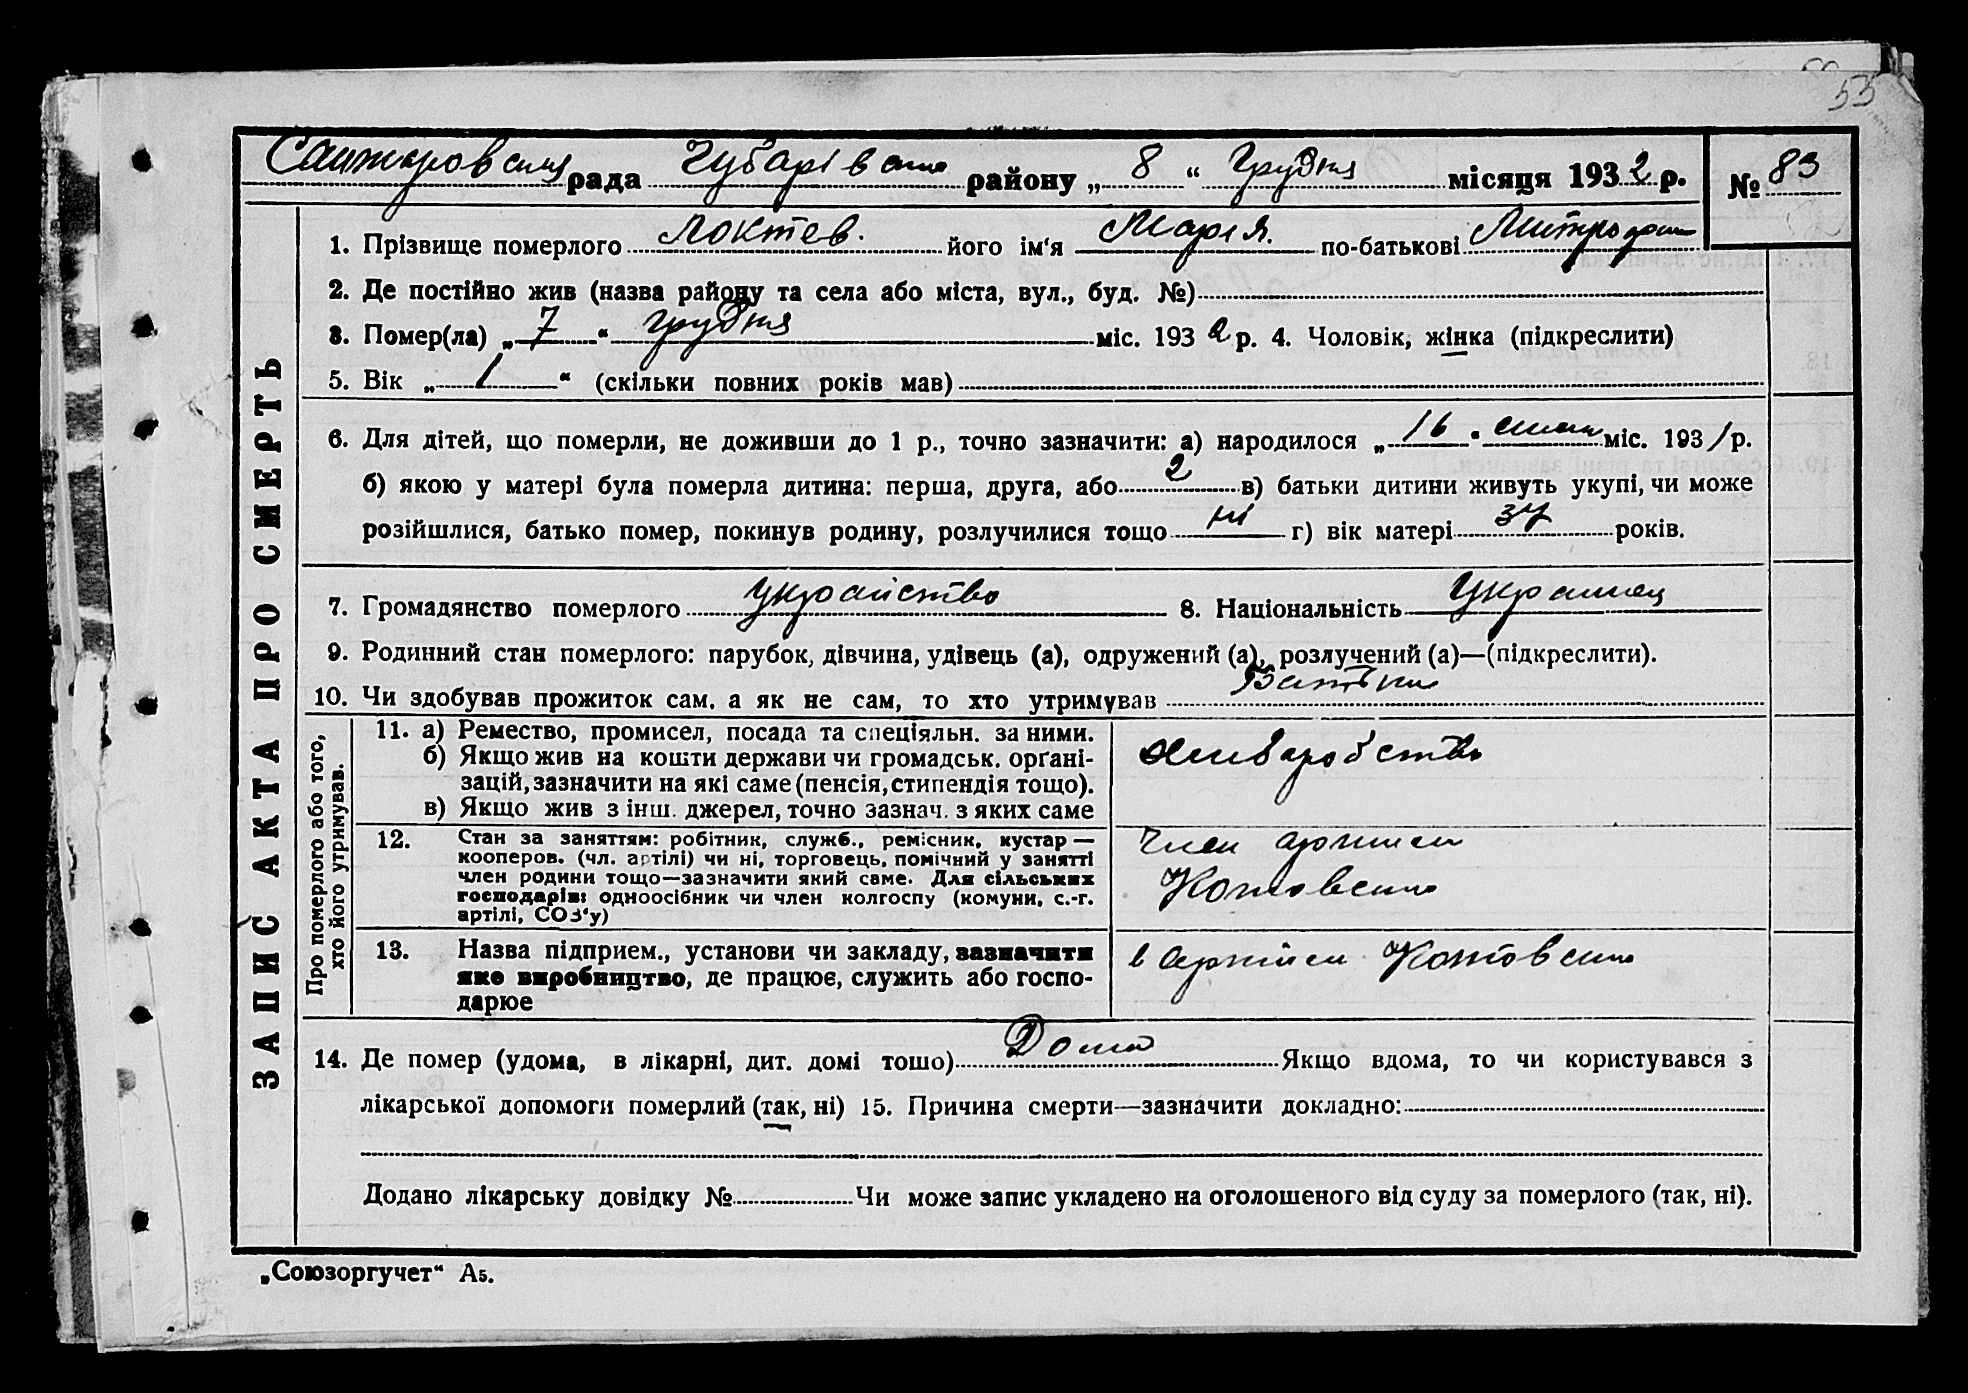 55
Сантаровська рада Губарівська району „ 8 “ Грудня місяця 1932 р. № 83
1. Прізвище померлого Локтев. його ім‘я Марія. по-батькові
2. Де постійно жив (назва району та села або міста, вул., буд. №)
3. Помер(ла) „ 7 “ грудня міс. 1932 р. 4. Чоловік, жінка (підкреслити)
5. Вік „ 1 “ (скільки повних років мав)
6. Для дітей, що померли, не доживши до 1 р., точно зазначити: а) народилося „ 16 “ міс. 1931 р.
б) якою у матері була померла дитина: перша, друга, або 2 в) батьки дитини живуть укупі, чи може
розійшлися, батько помер, покинув родину, розлучилися тощо ні г) вік матері 34 років.
7. Громадянство померлого 8. Національність Украинец
9. Родинний стан померлого: парубок, дівчина, удівець (а), одружений (а), розлучений (а)—(підкреслити).
10. Чи здобував прожиток сам, а як не сам, то хто утримував Батьки
ЗАПИС АКТА ПРО СМЕРТЬ
Про померлого або того,
хто його утримував.
11. а) Ремество, промисел, посада та спеціяльн. за ними.
б) Якщо жив на кошти держави чи громадськ. орґані-
зацій, зазначити на які саме (пенсія, стипендія тощо).
в) Якщо жив з інш. джерел, точно зазнач. з яких саме
хліборобство
12. Стан за заняттям: робітник, служб., ремісник, кустар —
кооперов. (чл. артілі) чи ні, торговець, помічний у занятті
член родини тощо—зазначити який саме. Для сільських
господарів: одноосібник чи член колгоспу (комуни, с.-г.
артілі, СОЗ‘у)
Член артили
Котовского
13. Назва підприєм., установи чи закладу, зазначити
яке виробництво, де працює, служить або госпо-
дарює
в артили Котовского
14. Де помер (удома, в лікарні, дит. домі тошо) Дома Якщо вдома, то чи користувався з
лікарської допомоги померлий (так, ні) 15. Причина смерти—зазначити докладно:
Додано лікарську довідку № Чи може запис укладено на оголошеного від суду за померлого (так, ні).
„Союзоргучет“ А5.